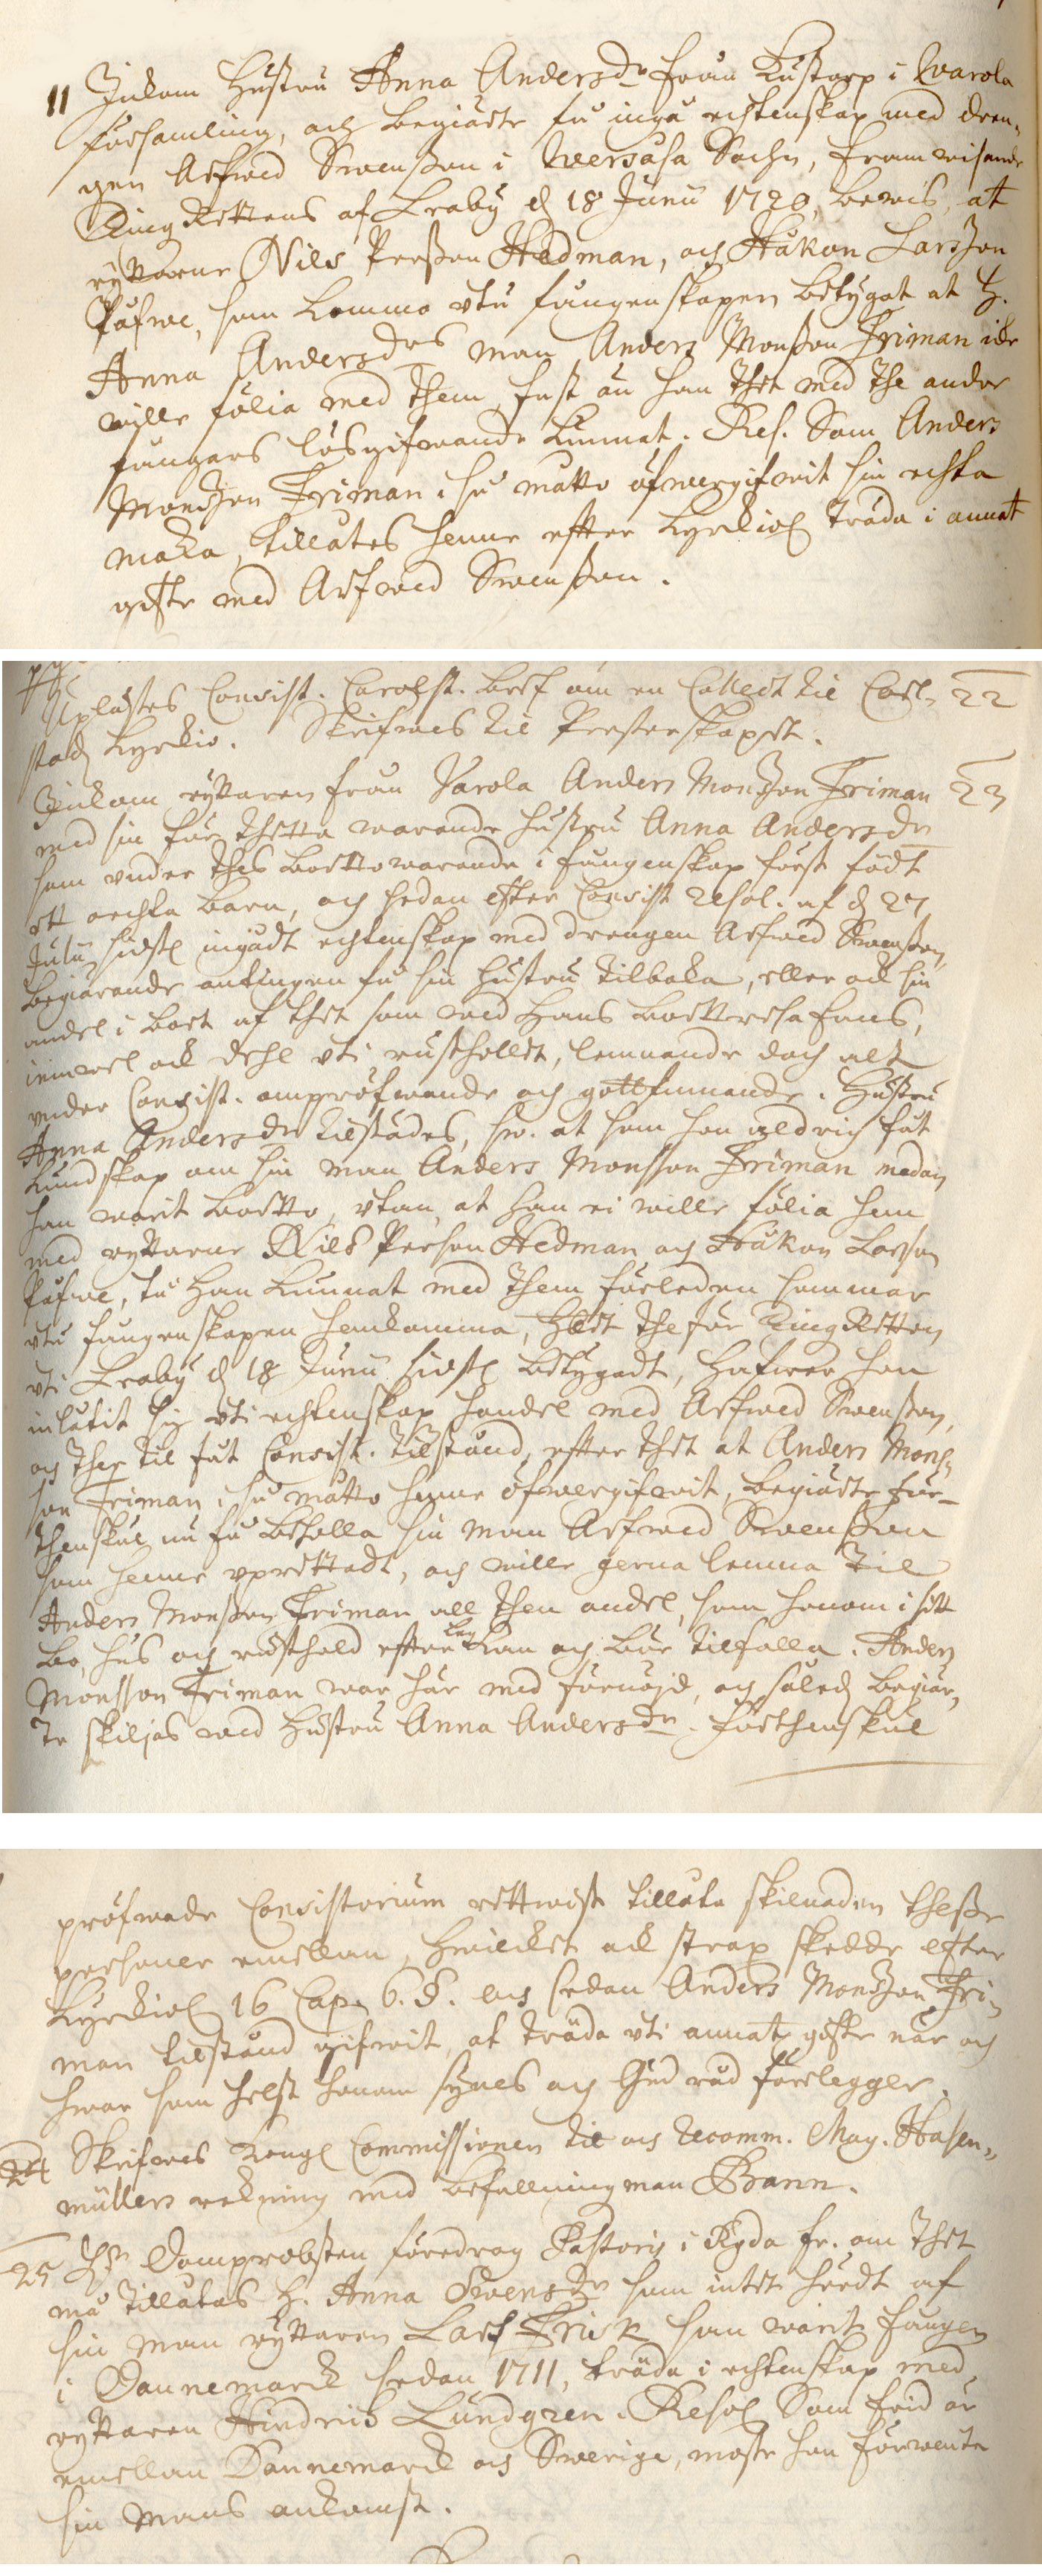 11 Inkom Hustru Anna Andersdr från Kustorp i Warola
församling, och begiärte få ingå echtenskap med dren-
gen Arfwed Swenßon i Wersåsa Sochn, framwisande
TingRettens af Leaby d 18 Junii 1720, bewis, at
ryttarne Nils Perßon Hedman, och Håkon Larsson
Påfwe, som komma utu fångenskapen betygat at H.
Anna Andersdos man Anders Monßon Friman icke
wille fölia med them, fast än han thet med the andre
fångars lösgifwande kunnat. Res. Som Anders
Monsson Friman i så måtto öfwergifwit sin echta
maka, tillåtes henne efter Kyrkiol träda i annat
gifte med Arfwed Swenßon.
Uplästes Consist. Carolst. bref om en Collect til Carl- 22
stads kyrkio. Skrifwes til Presterskapet.
Inkom ryttaren från Warola Anders Monsson Friman 23
med sin för thetta warande hustru Anna Andersdr
som under thes bortowarande i fångenskap först födt
ett aechta barn, och sedan efter Consist resol. af d 27
Julii sidstl ingådt echtenskap med drengen Arfwed Swenßon,
begiärande antingen få sin hustru tilbaka, eller ock sin
andel i boet af thet som wed hans bortresa fans,
iemwel ock dehl uti rusthollet, lemnande doch alt
under Consist. ompröfwande och gottfinnande. Hustru
Anna Andersdr tilstådes, sw. at som hon aldrig fåt
kundskap om sin man Anders Monsson Friman medan
han warit borto, utan at han ei wille fölia hem
med ryttarne Nils Person Hedman och Håkon Larson
Påfwe, tå han kunnat med them förleden sommar
utu fångenskapen hemkomma, thet the för TingRetten
uti Leaby d 18 Junii sidstl betygadt, hafwer hon
inlåtit sig uti echtenskaps handel med Arfwed Swenßon,
och ther til fåt Consist. tilstånd, efter thet at Anders Mons-
son Friman i så måtto henne öfwergifwit, begiärte för-
thenskul nu få beholla sin man Arfwed Swenßon
som henne uprettadt, och wille gerna lemna til
Anders Monßon Friman all then andel, som honom i sitt
bo, hus och rusthold efter Lag kan och bör tilfalla. Anders
Monsson Friman war här med förnöjd, och såleds begiär-
te skiljas wed Hustru Anna Andersdr. Förthenskul
pröfwade Consistorium rettwist tillåta skilnaden theßa
personer emellan, hwilcket ock strax skedde efter
Kyrkiol 16 Cap. 6. §. och sedan Anders Monsson Fri-
man tilstånd gifwit, at träda uti annat gifte när och
hwar som helst honom synes och Gud råd förelegger.
24 Skrifwes kongl Commissionen til och recomm. Mag. Hasen-
müllers rekning med befallningman Brann.
25 Hr Domprobsten föredrog Pastoris i Ryda fr. om thet
må tillåtas H. Anna Swensdr som intet hördt af
sin man ryttaren Lars Frisk som warit fången
i Dannemarck sedan 1711, träda i echtenskap med
ryttaren Hindrik Lundgren. Resol Som frid är
emellan Dannemarck och Swerige, moste hon förwenta
sin mans ankomst.